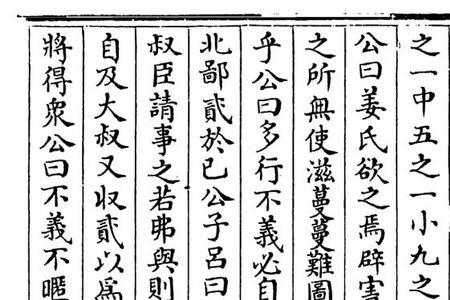 之一中五之一小九之
公曰姜氏欲之焉辟害
之所無使滋蔓蔓難圖
乎公曰多行不義必自
北鄙貳於已公子呂曰
叔臣請事之若弗與則
自及大叔又收貳以為
將得衆公曰不義不暱